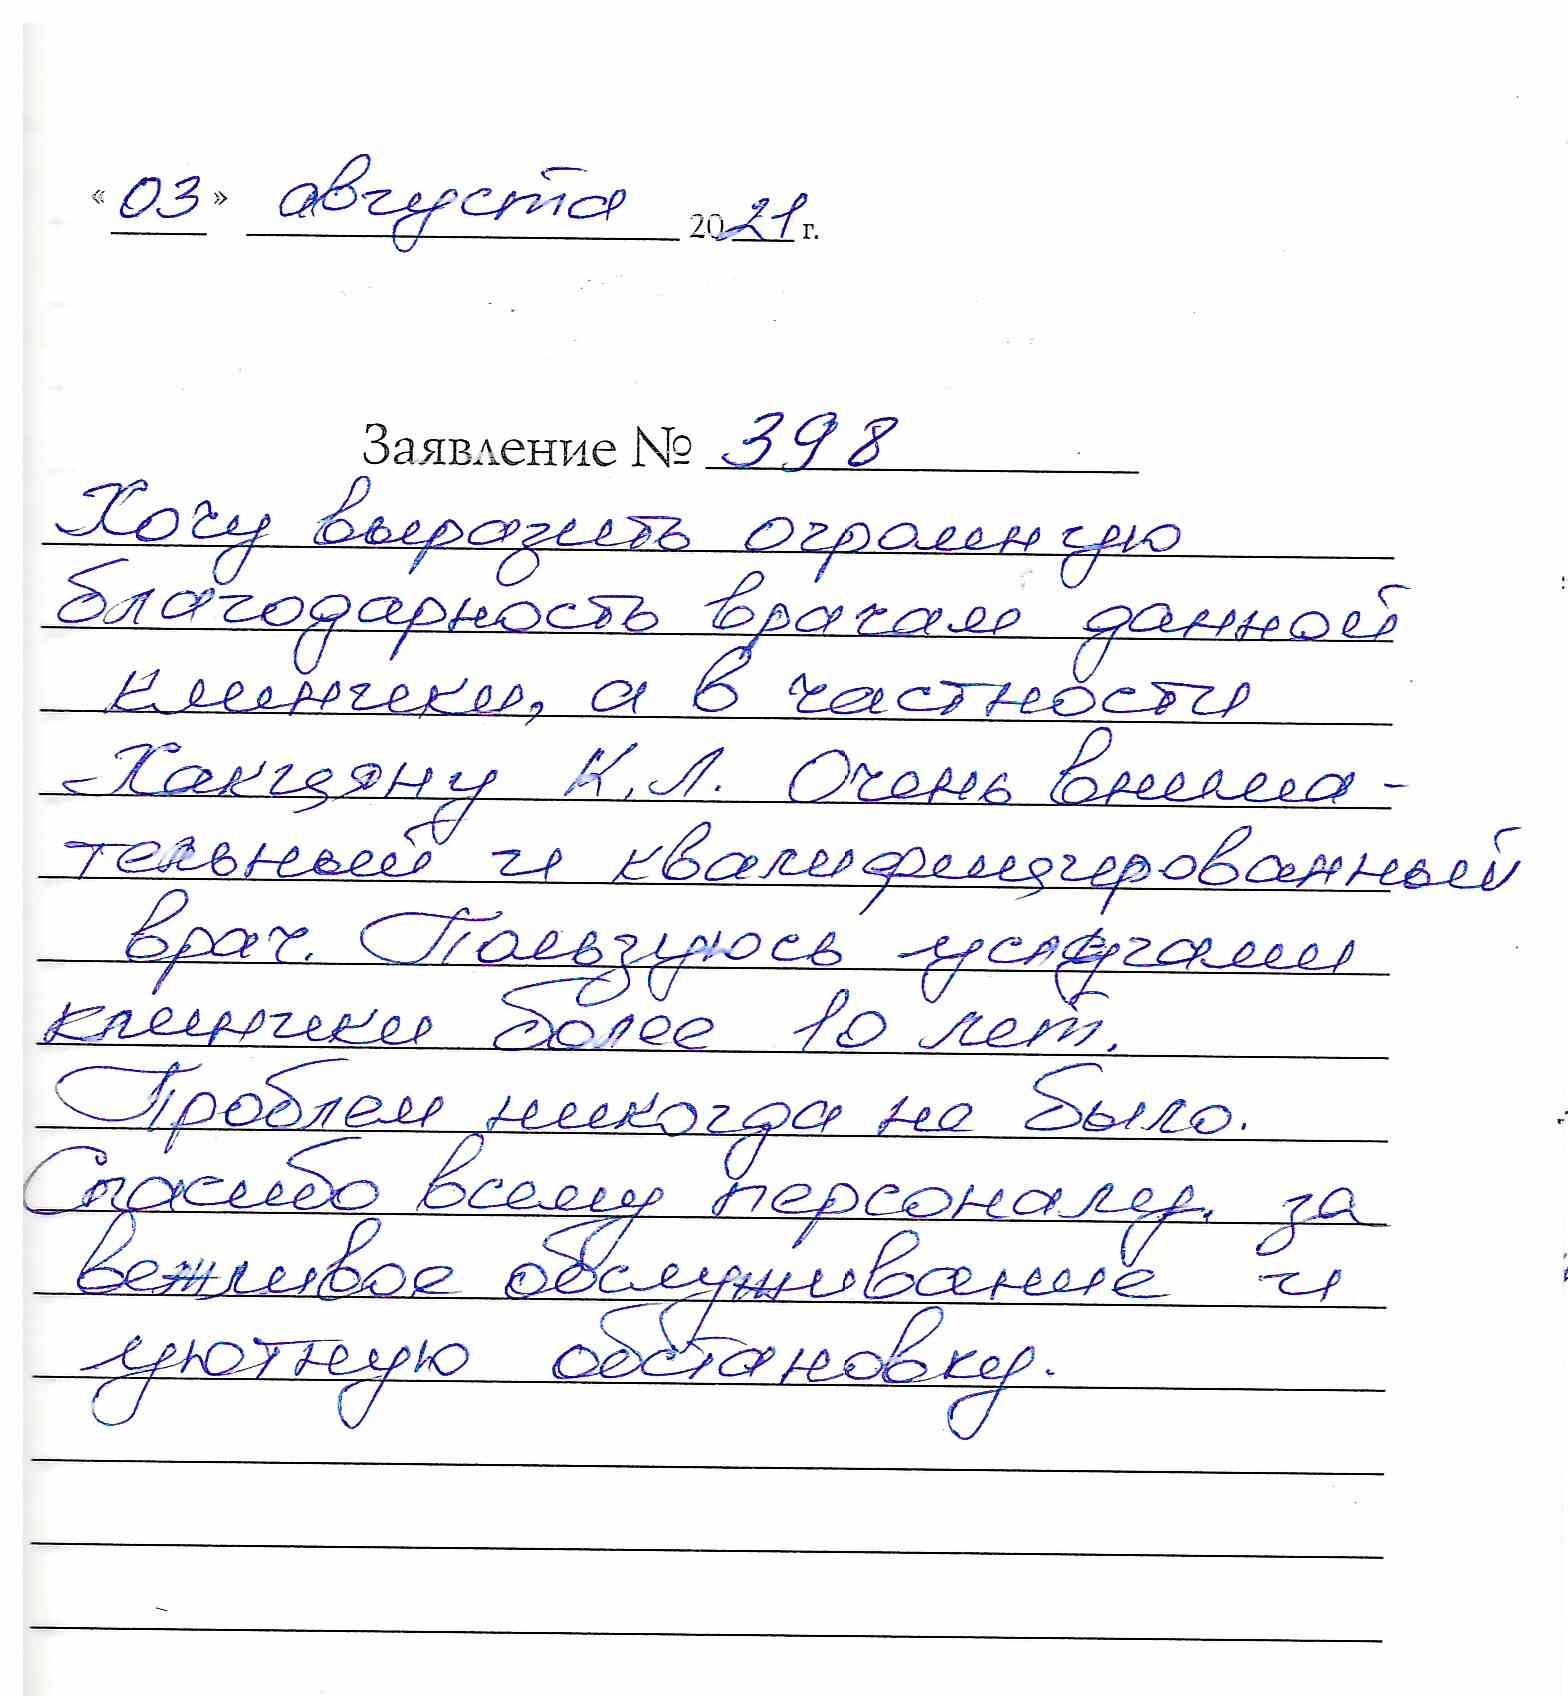 «03» августа 2021 г.
Заявление № 398
Хочу выразить огромную
благодарность врачам данной
клиники, а в частности
Хакцяну К.Л. Очень внима-
тельный и квалифицированный
врач. Пользуюсь услугами
клиники более 10 лет.
Проблем никогда не было.
Спасибо всему персоналу. за
вежливое обслуживание и
уютную обстановку.